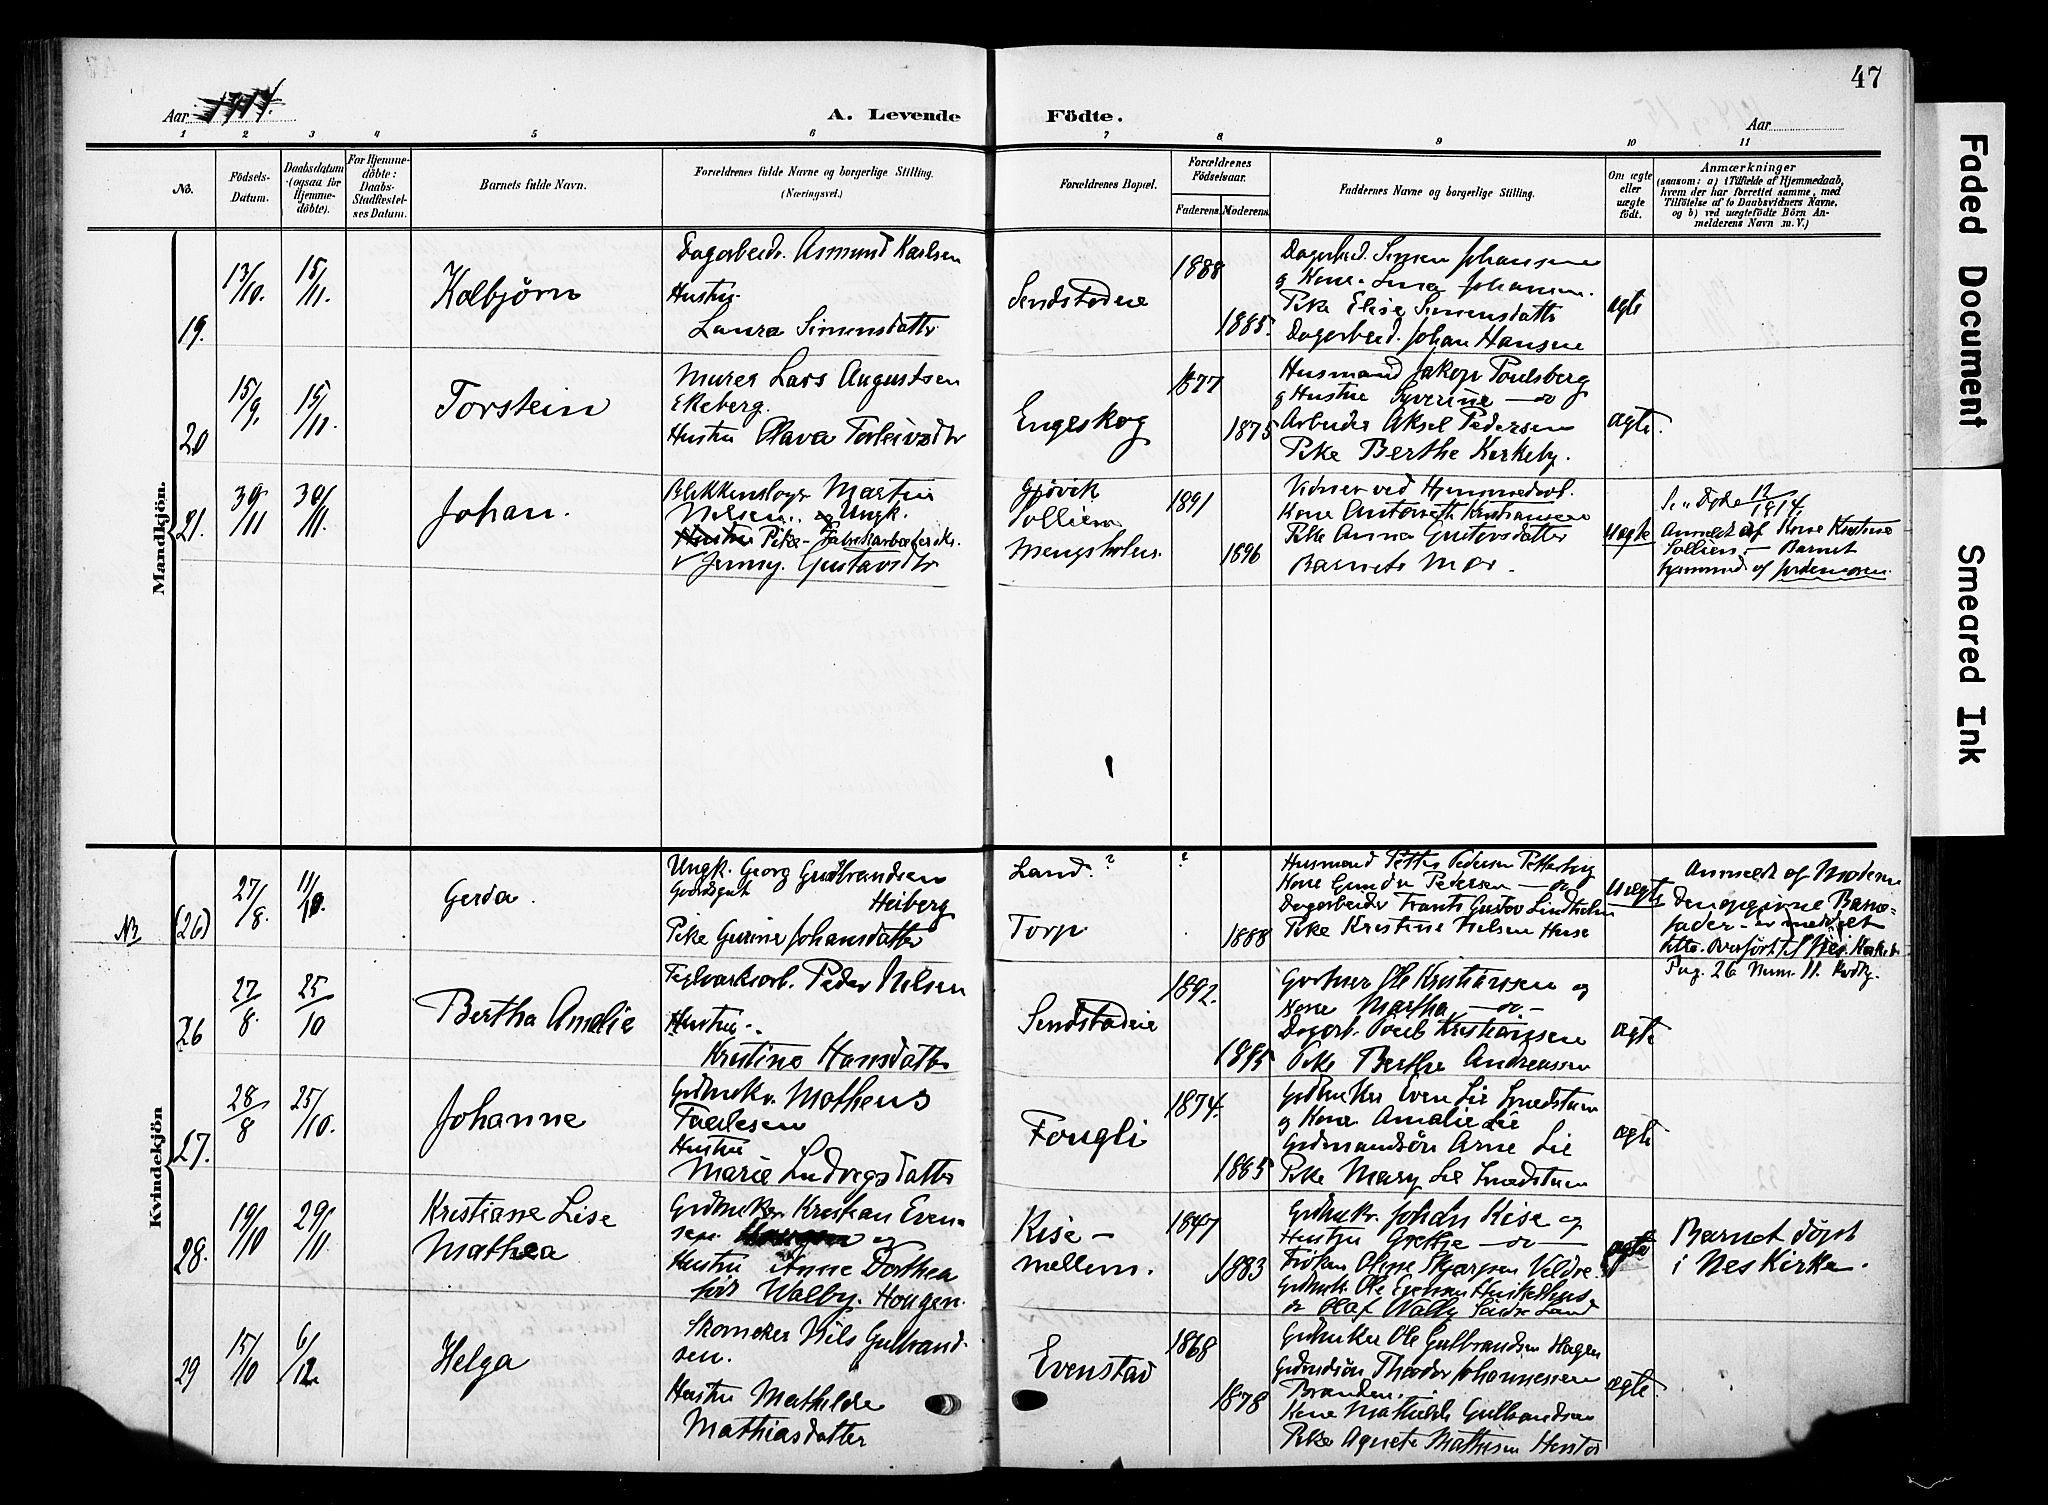 47
Aar 1914.
A. Levende Födte.
Aar
1 2 3 4 5 6 7 8 9 10 11
No.
Födsels-Datum.
Daabsdatum (ogsaa for Hjemme-döbte).
For Hjemme-döbte: Daabs-Stadfæstel-ses Datum.
Barnets fulde Navn.
Forældrenes fulde Navne og borgerlige Stilling.
(Næringsvei.)
Forældrenes Bopæl.
Forældrenes Födselsaar.
Faderens. Moderens.
Faddernes Navne og borgerlige Stilling.
Om ægte eller uægte födt.
Anmærkninger
(saasom: a) i Tilfælde af Hjemmedaab,
hvem der har forrettet samme, med
Tilföielse af to Daabsvidners Navne,
og b) ved uægtefödte Börn An-
melderens Navn m. V.)
Mandkjön.
19.
13/10.
15/11.
Kolbjörn
Dagarbeidr. Asmund Karlsen
Hustru
Laura Simensdatter
Sendstadeie
1888
1885.
Dagarbeid. Simen Johansen
og Kone Johansen.
Pike Elise Simensdatter
Dagarbeid. Johan Hansen
ægte
20
15/9.
15/11
Torstein
Murer Lars Augustsen
Ekeberg.
Hustru Olava Torleivsdtr
Engeskog
1877
1875
Husmand Jakop Poulsberg
og Hustru Syverine — do
Arbeider Aksel Pedersen
Pike Berthe Kirkeby.
ægte.
21.
30/11
30/11.
Johan.
Blikkenslager Martin
Nilsen. og Ungk.
Hustru Pike - Fabrikarbeiderske.
Jenny. Gustavsdtr
Gjøvik
Sollien
Mengsholen.
1891
1896
Vidner ved Hjemmedaab.
Kone Kristiansen
Pike Anna Gustavsdatter
Barnets Mor.
uægte
1914.
Anmeldt af Kone Kristine
Sollien. — Barnet
hjemmed. af jordemoren.
Kvindekjön
(26)
27/8.
11/10.
Gerda.
Ungk. Georg Gudbrandsen
Gaardsgut Heiberg
Pike Gurine Johansdatter
Land?
Torp
?
1888
Husmand Petter Pedersen
Kone Pedersen — do
Dagarbeider Frants Gustav Lindholm
Pike Kristine Nilsen
uægte
Anmeldt af Moderen
Den opgivne Barne-
fader er meddelt
dette. Overført
Pag. 26 Num. 11. Kvdkj.
26
27/8.
25/10
Bertha Amalie
Teglverksarb. Peder Nilsen
Hustru
Kristine Hansdatter
Sendstadeie
1892.
1895
Gartner Ole Kristiansen og
Kone Martha — do —
Dagarb. Kristiansen
Pike Berthe Andreassen
ægte
27.
28/8
25/10.
Johanne
Grdbruker. Matheus
Hustru
Marie Ludvigsdatter
Fougli
1874.
1885
Grdbruker Even Lie Smedstuen
og Kone Amalie Lie
Grdmandsön Arne Lie
Pike Mary Lie Smedstuen
ægte
28.
19/10
29/11.
Kristiane Lise
Mathea
Grdbruker Kristian Even-
sen og
Hustru Anne Dorthea
født Walby. Hougen.
Kise-
mellem.
1847
1883
Grdbruk. Johan Kise og
Hustru Grethe — do —
Frøken Olene Skjærpen Veldre
Grdbruk. Ole Evensen
do Olaf Walby Land
ægte
Barnet døpt
i Nes Kirke.
29
15/10
6/12
Helga
Skomaker Nils Gulbrand-
sen.
Hustru Mathilde
Mathiasdatter
Evenstad
1868
1878
Grdbruker Ole Gulbrandsen Hagen
Grdmdsön Theodor Johannesen
Branden.
Kone Mathilde Gulbrandsen
Pike Agnete Mathisen
ægte
Faded Document
Smeared Ink